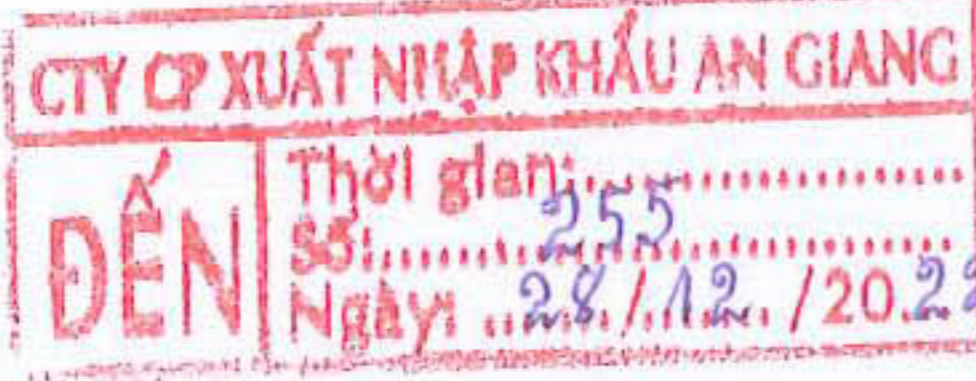 CTY CP XUẤT NHẬP KHẨU AN GIANG
ĐẾN
Thời gian:....................
Số:........255...............
Ngày: ..28../..12.. /20.22